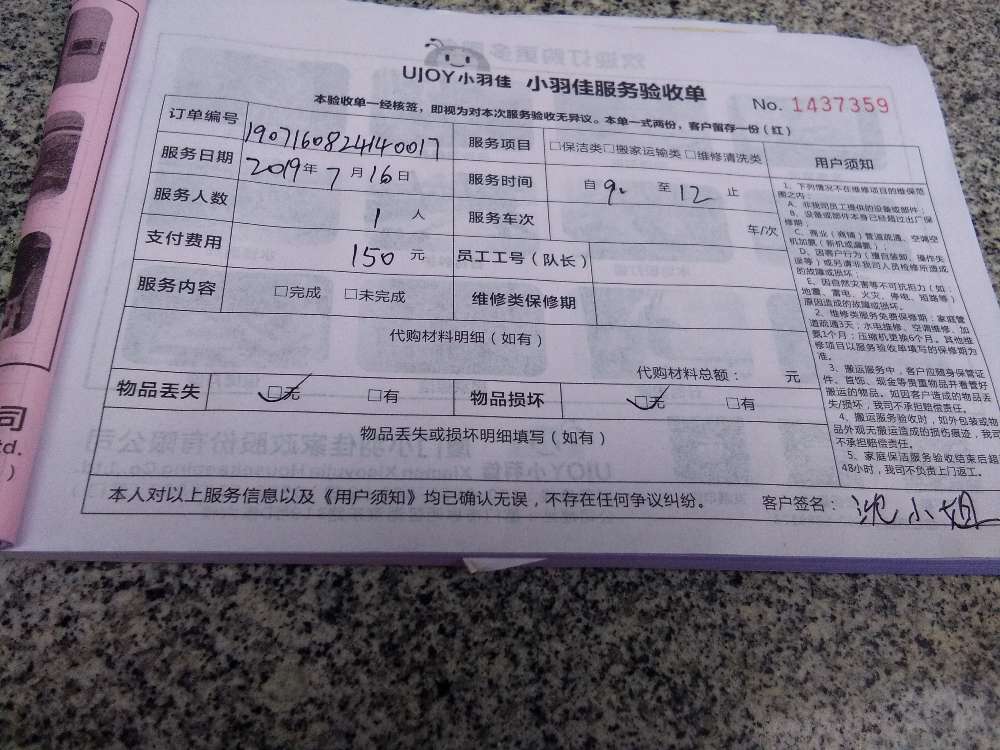 UJOY小羽佳 小羽佳服务验收单
No. 1437359
本验收单一经核签，即视为对本次服务验收无异议。本单一式两份，客户留存一份（红）
订单编号 1907160824140017 服务项目 □保洁类□搬家运输类□维修清洗类 用户须知
服务日期 2019年7月16日 服务时间 自 9 至 12 止
服务人数 1 人 服务车次 车/次
支付费用 150 元 员工工号（队长）
服务内容 □完成 □未完成 维修类保修期
代购材料明细（如有）
代购材料总额： 元
物品丢失 □无 □有 物品损坏 □无 □有
物品丢失或损坏明细填写（如有）
本人对以上服务信息以及《用户须知》均已确认无误，不存在任何争议纠纷。 客户签名： 沈小姐
1、下列情况不在维修项目的维保范
围之内：
A、非我司员工提供的设备或部件；
B、设备或部件本身已经超过出厂保
修期；
C、商业（商铺）管道疏通、空调空
机加氨（新机或漏氨）；
D、因客户行为（擅自装卸、操作失
误等）或另请非我司人员检修所造成
的故障或损坏；
E、因自然灾害等不可抗拒力（如
地震、雷电、火灾、停电、短路等）
原因造成的故障或损坏。
2、维修类服务免费保修期：家庭管
道疏通3天；水电维修、空调维修、加
氨1个月；压缩机更换6个月。其他维
修项目以服务验收单填写的保修期为
准。
3、搬运服务中，客户应随身保管证
件、首饰、现金等贵重物品并看管好
搬运的物品。如因客户造成的物品丢
失/损坏，我司不承担赔偿责任。
4、搬运服务验收时，如外包装或物
品外观无搬运造成的损伤痕迹，我司
不承担赔偿责任。
5、家庭保洁服务验收结束后超
48小时，我司不负责上门返工。
司
td.
）